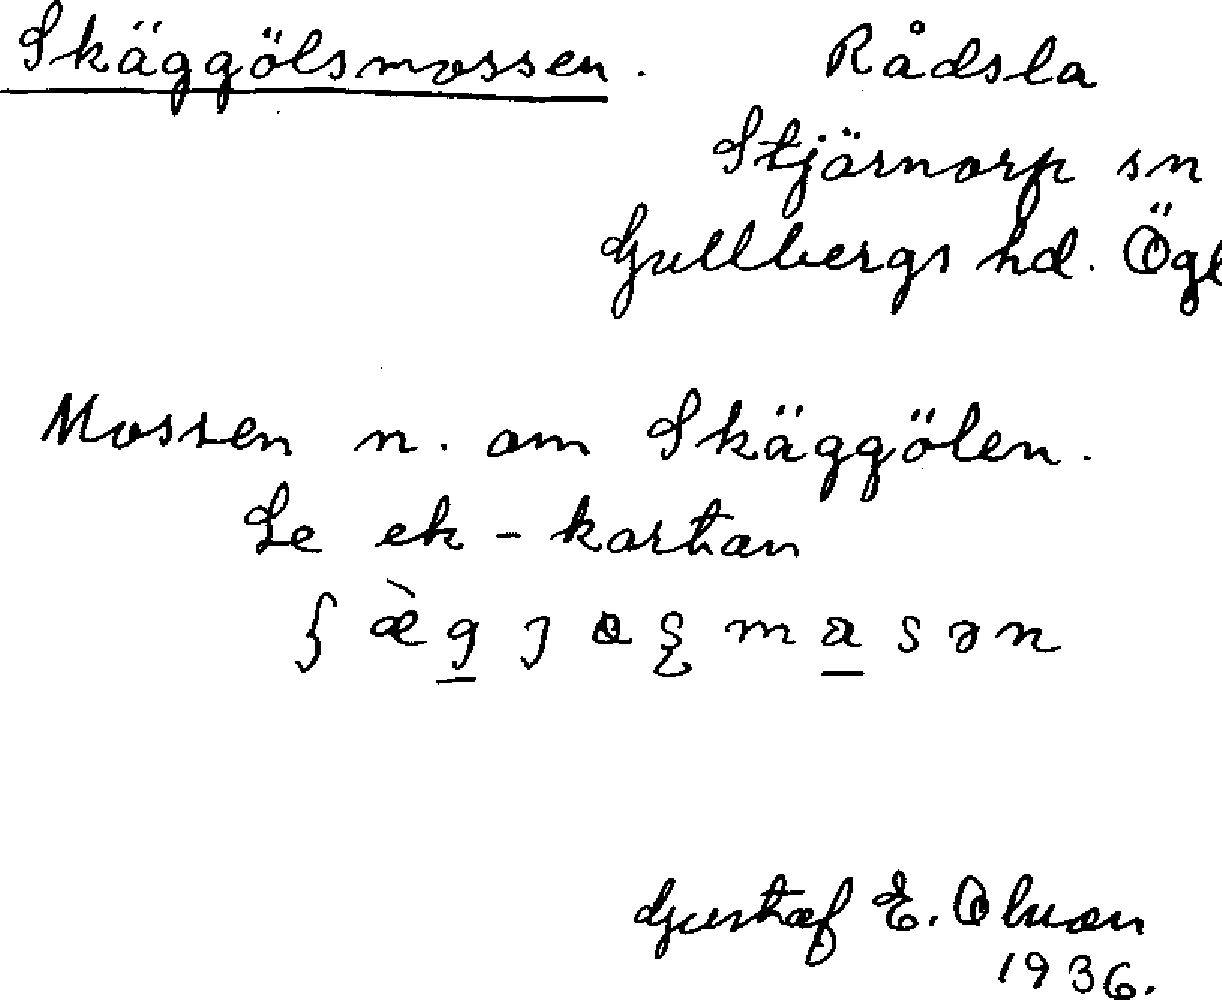 Skäggölsmossen. Rådsla
Stjärnorp sn
Gullbergs hd. Ögl
Mossen n. om Skäggölen.
Se ek-kartan
Gustaf E. Olsson
1936.